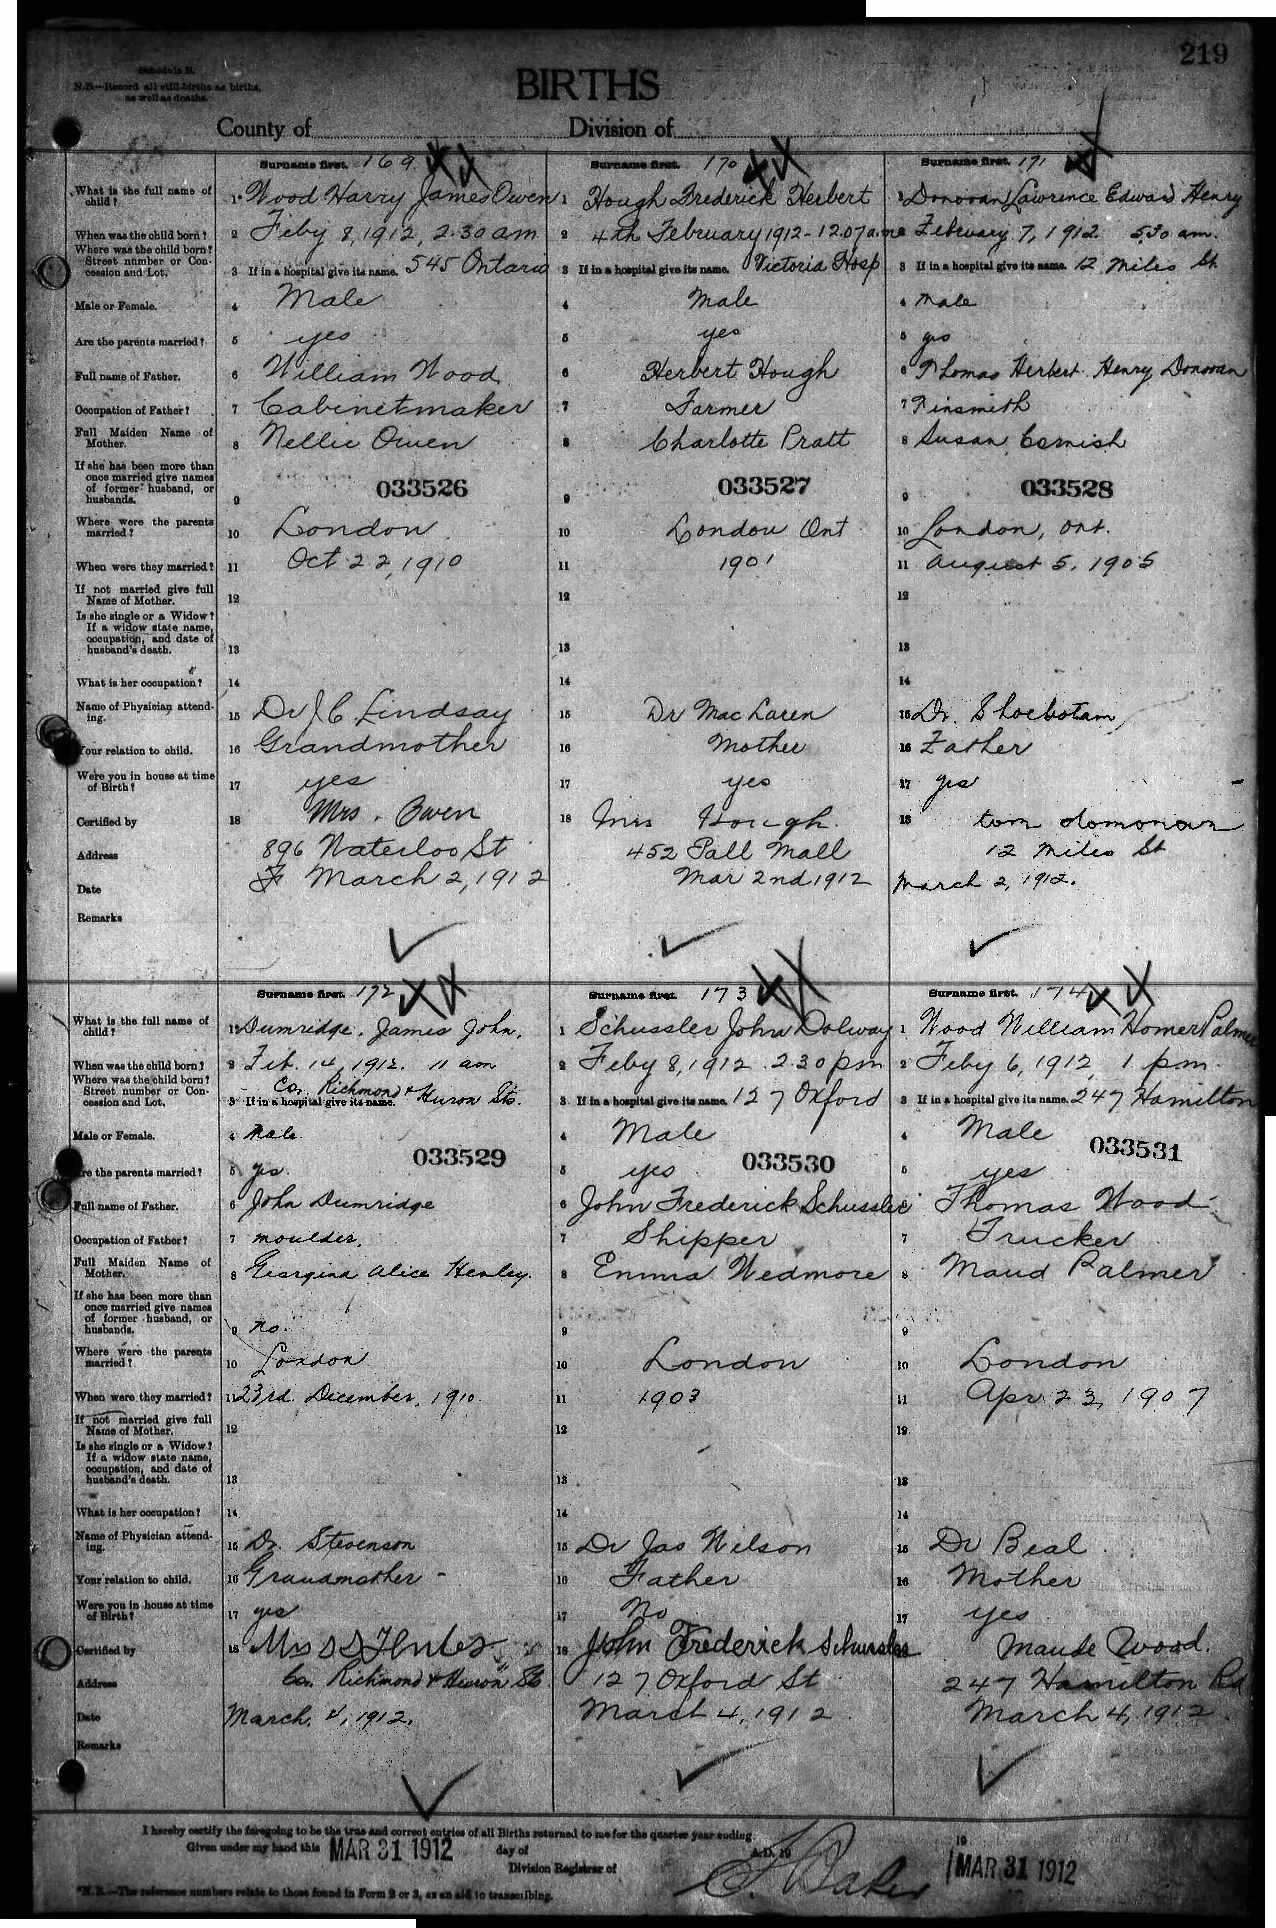 219
Schedule B.
N.B.—Record all still-births as births,
as well as deaths.
BIRTHS
County of
Division of
Surname first. 169
Surname first. 170
Surname first. 171
What is the full name of child?
1 Wood Harry James Owen
1 Hough Frederick Herbert
1 Donovan Lawrence Edward Henry
When was the child born?
2 Feby 8, 1912, 2.30 am
2 4th February 1912 - 12.07 a.m
2 February 7, 1912 5.30 am.
Where was the child born? Street number or Concession and Lot.
3 If in a hospital give its name. 545 Ontario
3 If in a hospital give its name. Victoria Hosp
3 If in a hospital give its name. 12 Miles St
Male or Female.
4 Male
4 Male
4 Male
Are the parents married?
5 yes
5 yes
5 yes
Full name of Father.
6 William Wood
6 Herbert Hough
6 Thomas Herbert Henry Donovan
Occupation of Father?
7 Cabinetmaker
7 Farmer
7 Tinsmith
Full Maiden Name of Mother.
8 Nellie Owen
8 Charlotte Pratt
8 Susan Cornish
If she has been more than once married give names of former husband, or husbands.
9 033526
9 033527
9 033528
Where were the parents married?
10 London
10 London Ont
10 London, Ont.
When were they married?
11 Oct 22, 1910
11 1901
11 August 5, 1905
If not married give full Name of Mother.
12
12
12
Is she single or a Widow? If a widow state name, occupation, and date of husband's death.
13
13
13
What is her occupation?
14
14
14
Name of Physician attending.
15 Dr J C Lindsay
15 Dr MacLaren
15 Dr. Shoebotam
Your relation to child.
16 Grandmother
16 Mother
16 Father
Were you in house at time of Birth?
17 yes
17 yes
17 yes
Certified by
18 Mrs. Owen
18 Mrs Hough.
18 tom donovan
Address
896 Waterloo St
452 Pall Mall
12 Miles St
Date
March 2, 1912
Mar 2nd 1912
March 2, 1912.
Remarks
Surname first. 172
Surname first. 173
Surname first. 174
What is the full name of child?
1 Dumridge, James John,
1 Schussler John Dolway
1 Wood William Homer Palmer
When was the child born?
2 Feb. 14, 1912. 11 am
2 Feby 8, 1912. 2.30 pm
2 Feby 6, 1912, 1 p.m.
Where was the child born? Street number or Concession and Lot.
3 If in a hospital give its name. Cor. Richmond & Huron Sts.
3 If in a hospital give its name. 127 Oxford
3 If in a hospital give its name. 247 Hamilton
Male or Female.
4 Male
4 Male
4 Male
033529
033530
033531
Are the parents married?
5 yes.
5 yes
5 yes
Full name of Father.
6 John Dumridge
6 John Frederick Schussler
6 Thomas Wood
Occupation of Father?
7 Moulder,
7 Shipper
7 Trucker
Full Maiden Name of Mother.
8 Georgina Alice Henley.
8 Emma Wedmore
8 Maud Palmer
If she has been more than once married give names of former husband, or husbands.
9 no.
9
9
Where were the parents married?
10 London
10 London
10 London
When were they married?
11 23rd December, 1910.
11 1903
11 Apr 23, 1907
If not married give full Name of Mother.
12
12
12
Is she single or a Widow? If a widow state name, occupation, and date of husband's death.
13
13
13
What is her occupation?
14
14
14
Name of Physician attending.
15 Dr. Stevenson
15 Dr Jas Wilson
15 Dr Beal
Your relation to child.
16 Grandmother -
16 Father
16 Mother
Were you in house at time of Birth?
17 yes
17 No
17 yes
Certified by
18 Mrs
18 John Frederick Schussler
Maude Wood.
Address
Co. Richmond & Huron St.
127 Oxford St
247 Hamilton Rd
Date
March. 4, 1912.
March 4, 1912
March 4, 1912
Remarks
I hereby certify the foregoing to be the true and correct entries of all Births returned to me for the quarter year ending
19
Given under my hand this MAR 31 1912 day of A.D. 19
MAR 31 1912
Division Registrar of
Baker
*N.B.—The reference numbers relate to those found in Form 2 or 3, as an aid to transcribing.